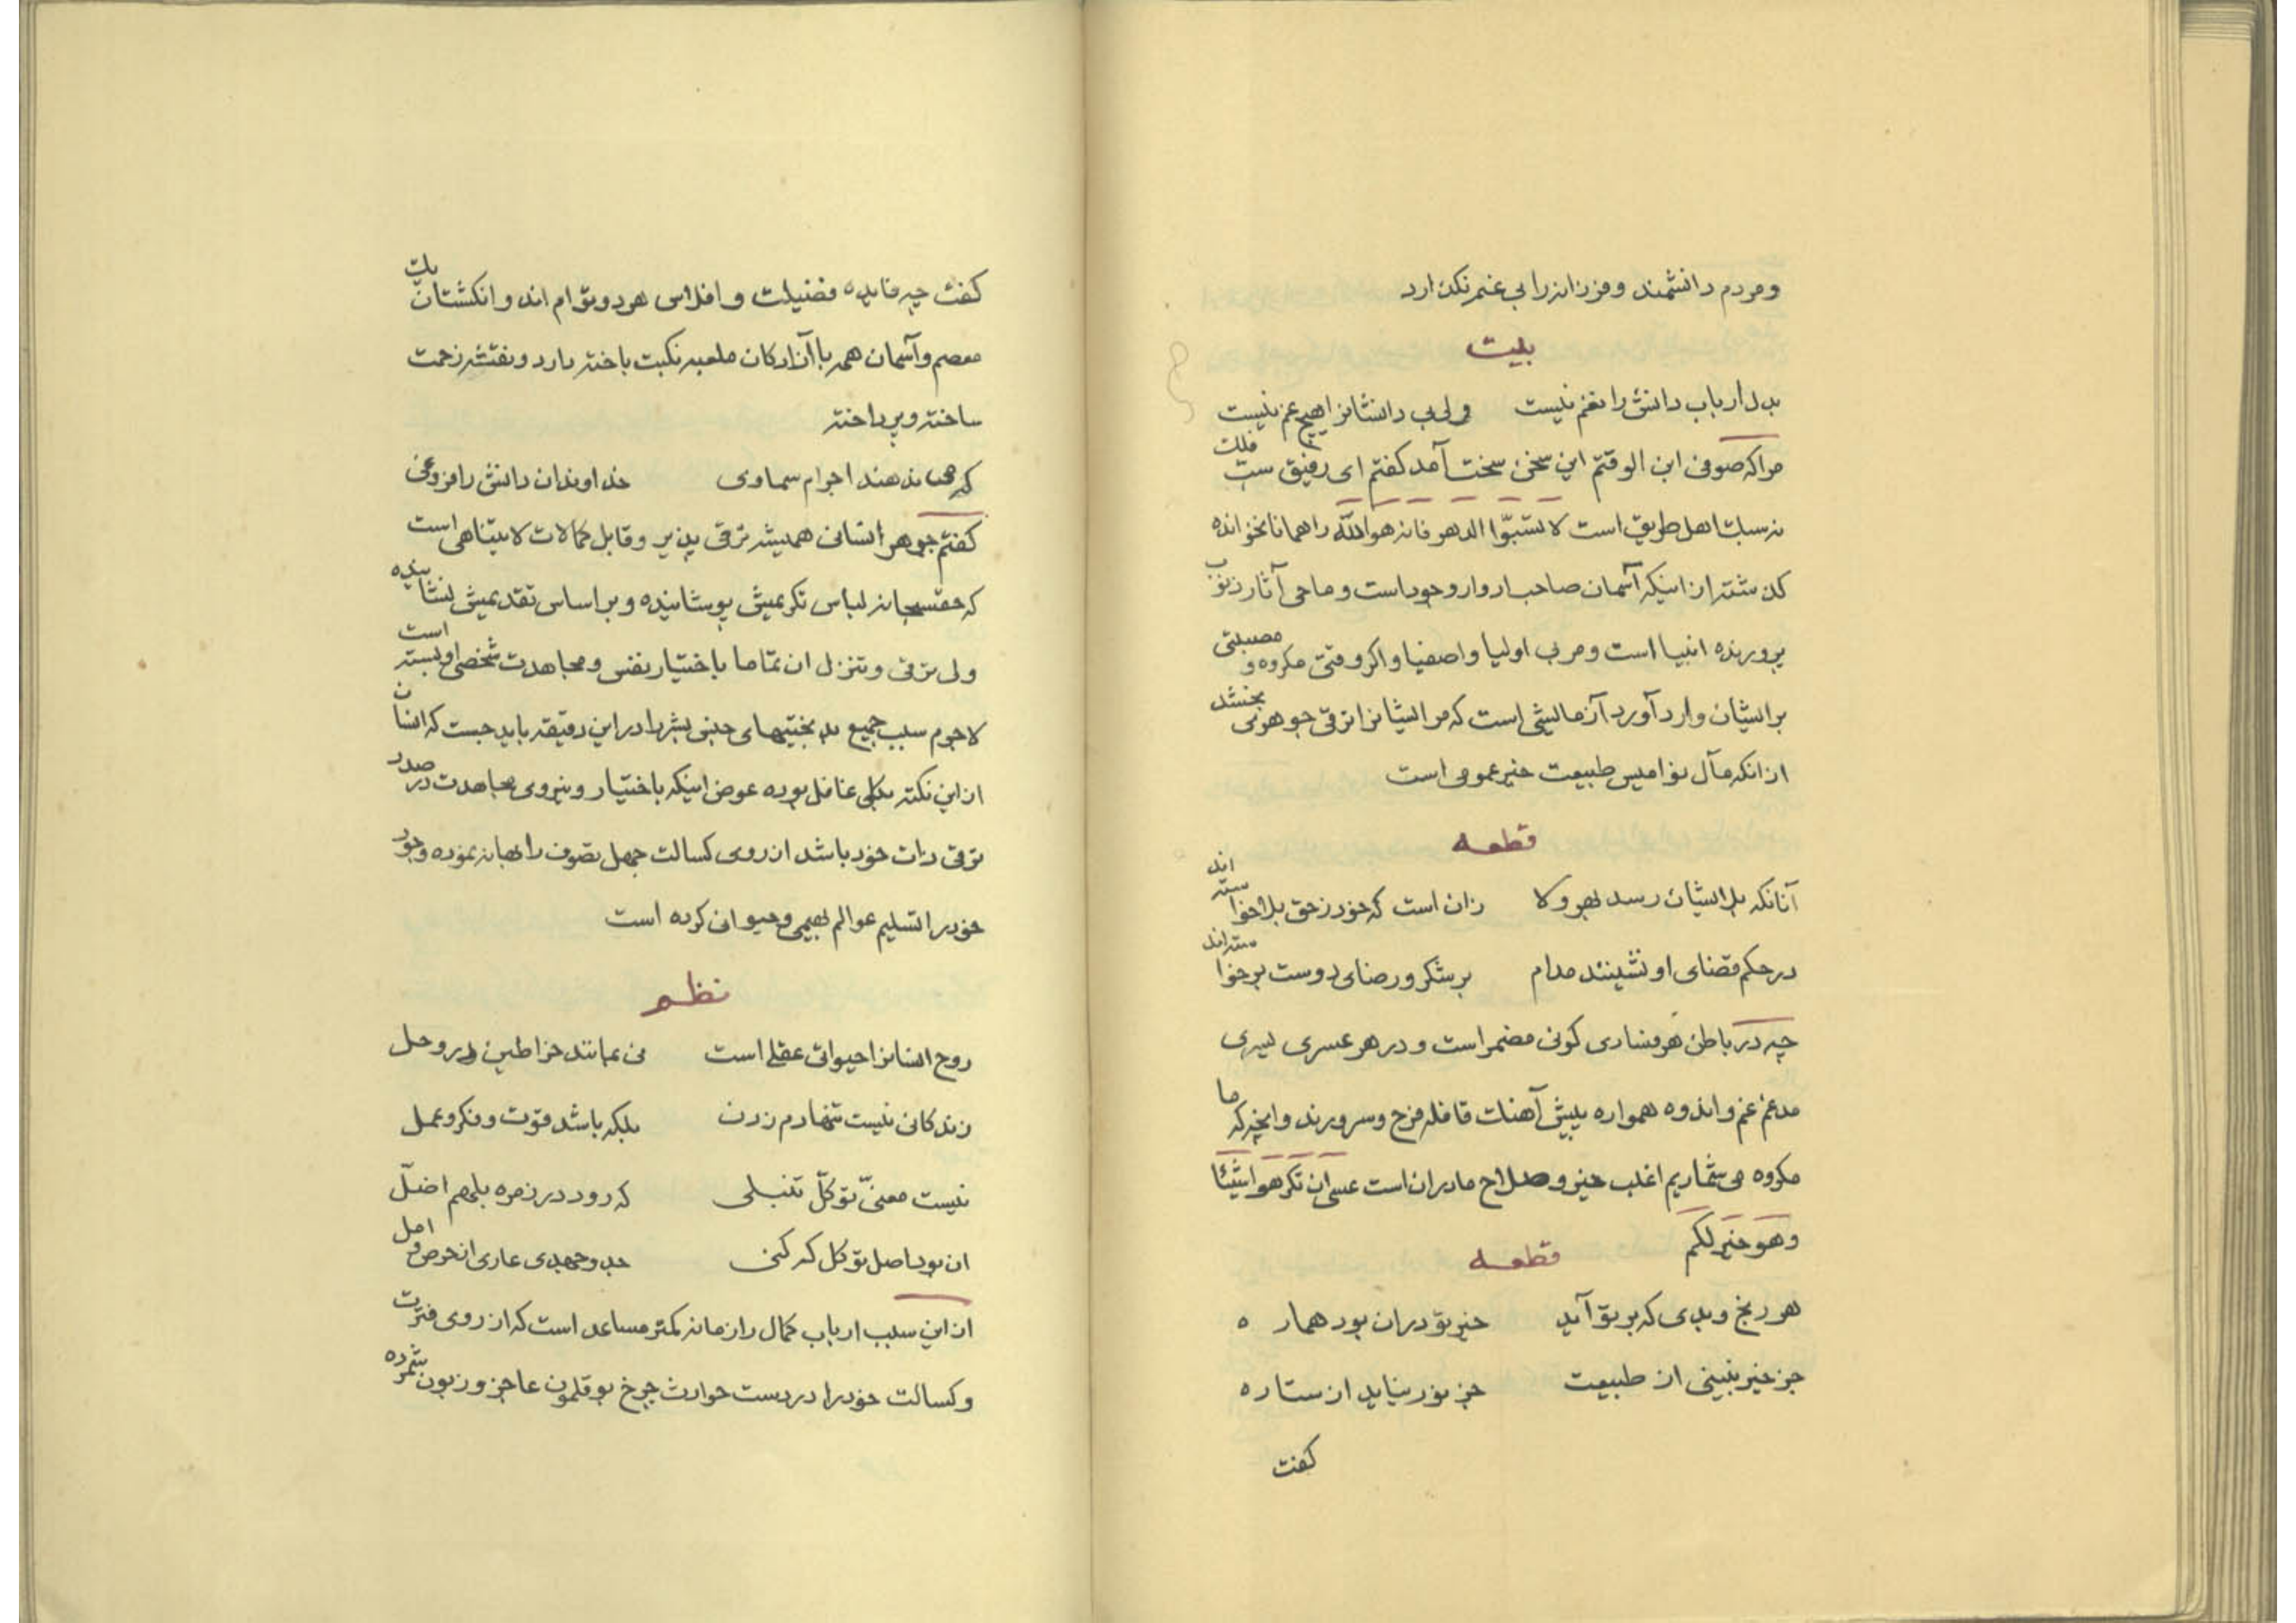 ومردم دانشمند وفرزانه را بی غم نکذارد
بیت
بدل ارباب دانش را نعم نیست ولی بی دانشانرا هیچ غم نیست
مرا که صوفی ابن الوقتم این سخن سخت آمد کفتم ای رفیق سب فلک
نه سبک اهل طریق است لا تسبّوا الدهر فانه هو الله را همانا نخوانده
کذشته از اینکه آسمان صاحب ادوار وجود است و ماحی آثار ذنوب
پرورنده انبیا است ومربی اولیا واصفیا و اکر وقتی مکروه و مصیبتی
بر ایشان وارد آورد آزمایشی است که مر ایشانرا ترقی جوهری بخشد
از انکه مآل نوامیس طبیعت خیر عمومی است
قطعه
آنانکه بلا ایشان رسد بهر ولا زان است که خود ز حق بلا خواسته اند
در حکم قضای او نشینند مدام بر شکر و رضای دوست برخواسته اند
چه در باطن هر فسادی کونی مضمر است و در هر عسری یسری
مدغم غم و اندوه همواره پیش آهنک قافله فرح و سرورند و انچه که ما
مکروه می شماریم اغلب خیر و صلاح ما در ان است عسی ان تکرهوا شیئا
وهو خیر لکم قطعه
هر رنج و بدی که بر تو آید خیر تو در ان بود هماره
جز خیر نبینی از طبیعت جز نور نیاید از ستاره
کفت
کفت چه فایده فضیلت و افلاس هر دو توام اند و انکشتان یک
معصم و آسمان همه با آزادکان ملعبه نکبت باخته دارد و نقشه زحمت
ساخته و پرداخته
که می ندهند اجرام سماوی خداوندان دانش را فروغی
کفتم جوهر انسانی همیشه ترقی پذیر و قابل کمالات لا یتناهی است
که حق سبحانه لباس تکریمش پوشانیده و بر اساس تقدیمش نشانیده
ولی ترقی و تنزل ان تماما باختیار نفس و مجاهدت شخص او بسته است
لاجرم سبب جمیع بدبختیهای جنس بشر را در این دقیقه باید جست که انسان
از این نکته بکلی غافل بوده عوض اینکه باختیار و نیروی مجاهدت در صدد
ترقی ذات خود باشد از روی کسالت جهل تصوف را بهانه نموده و وجود
خود را تسلیم عوالم بهیمی و حیوانی کرده است
نظم
روح انسانرا حیواتی عقلی است نی بمانند خراطین در وحل
زندکانی نیست تنها دم زدن بلکه باشد قوت و فکر و عمل
نیست معنیّ توکلّ تنبلی که رود در زمره بل هم اضلّ
ان بود اصل توکل که کنی جد و جهدی عاری از حرص و امل
از این سبب ارباب کمال را زمانه کمتر مساعد است که از روی فترت
و کسالت خود را در دست حوادث چرخ بوقلمون عاجز و زبون شمرده